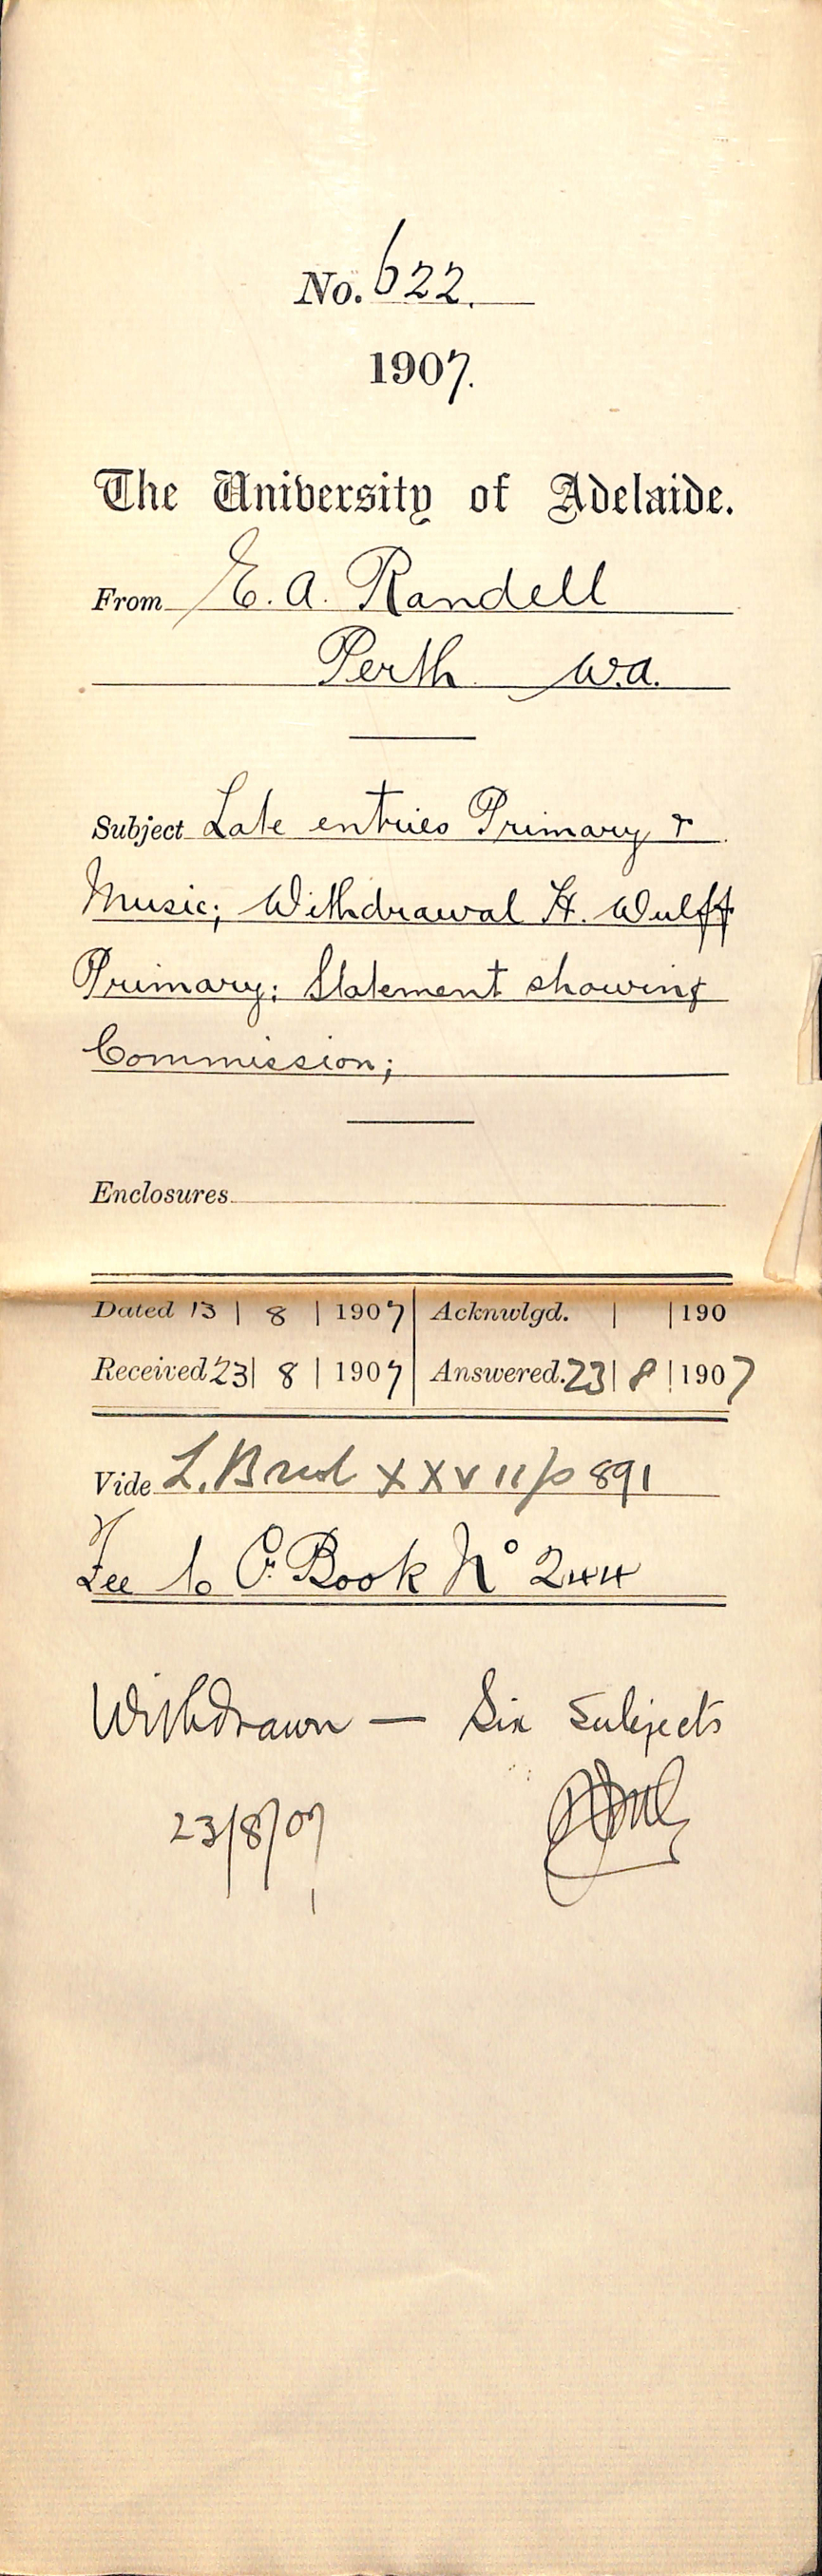 No. 622.
1907.
The University of Adelaide.
From E. A. Randell
Perth W.A.
Subject Late entries Primary &
Music; Withdrawal H. Wulff
Primary: Statement showing
Commission;
Enclosures
Dated 13 | 8 | 1907 | Acknwlgd. | | 190
Received 23 | 8 | 1907 | Answered. 23 | 8 | 1907
Vide L. Book XXVII p 891
Fee to C. Book No 244
Withdrawn — Six Subjects
23/8/07